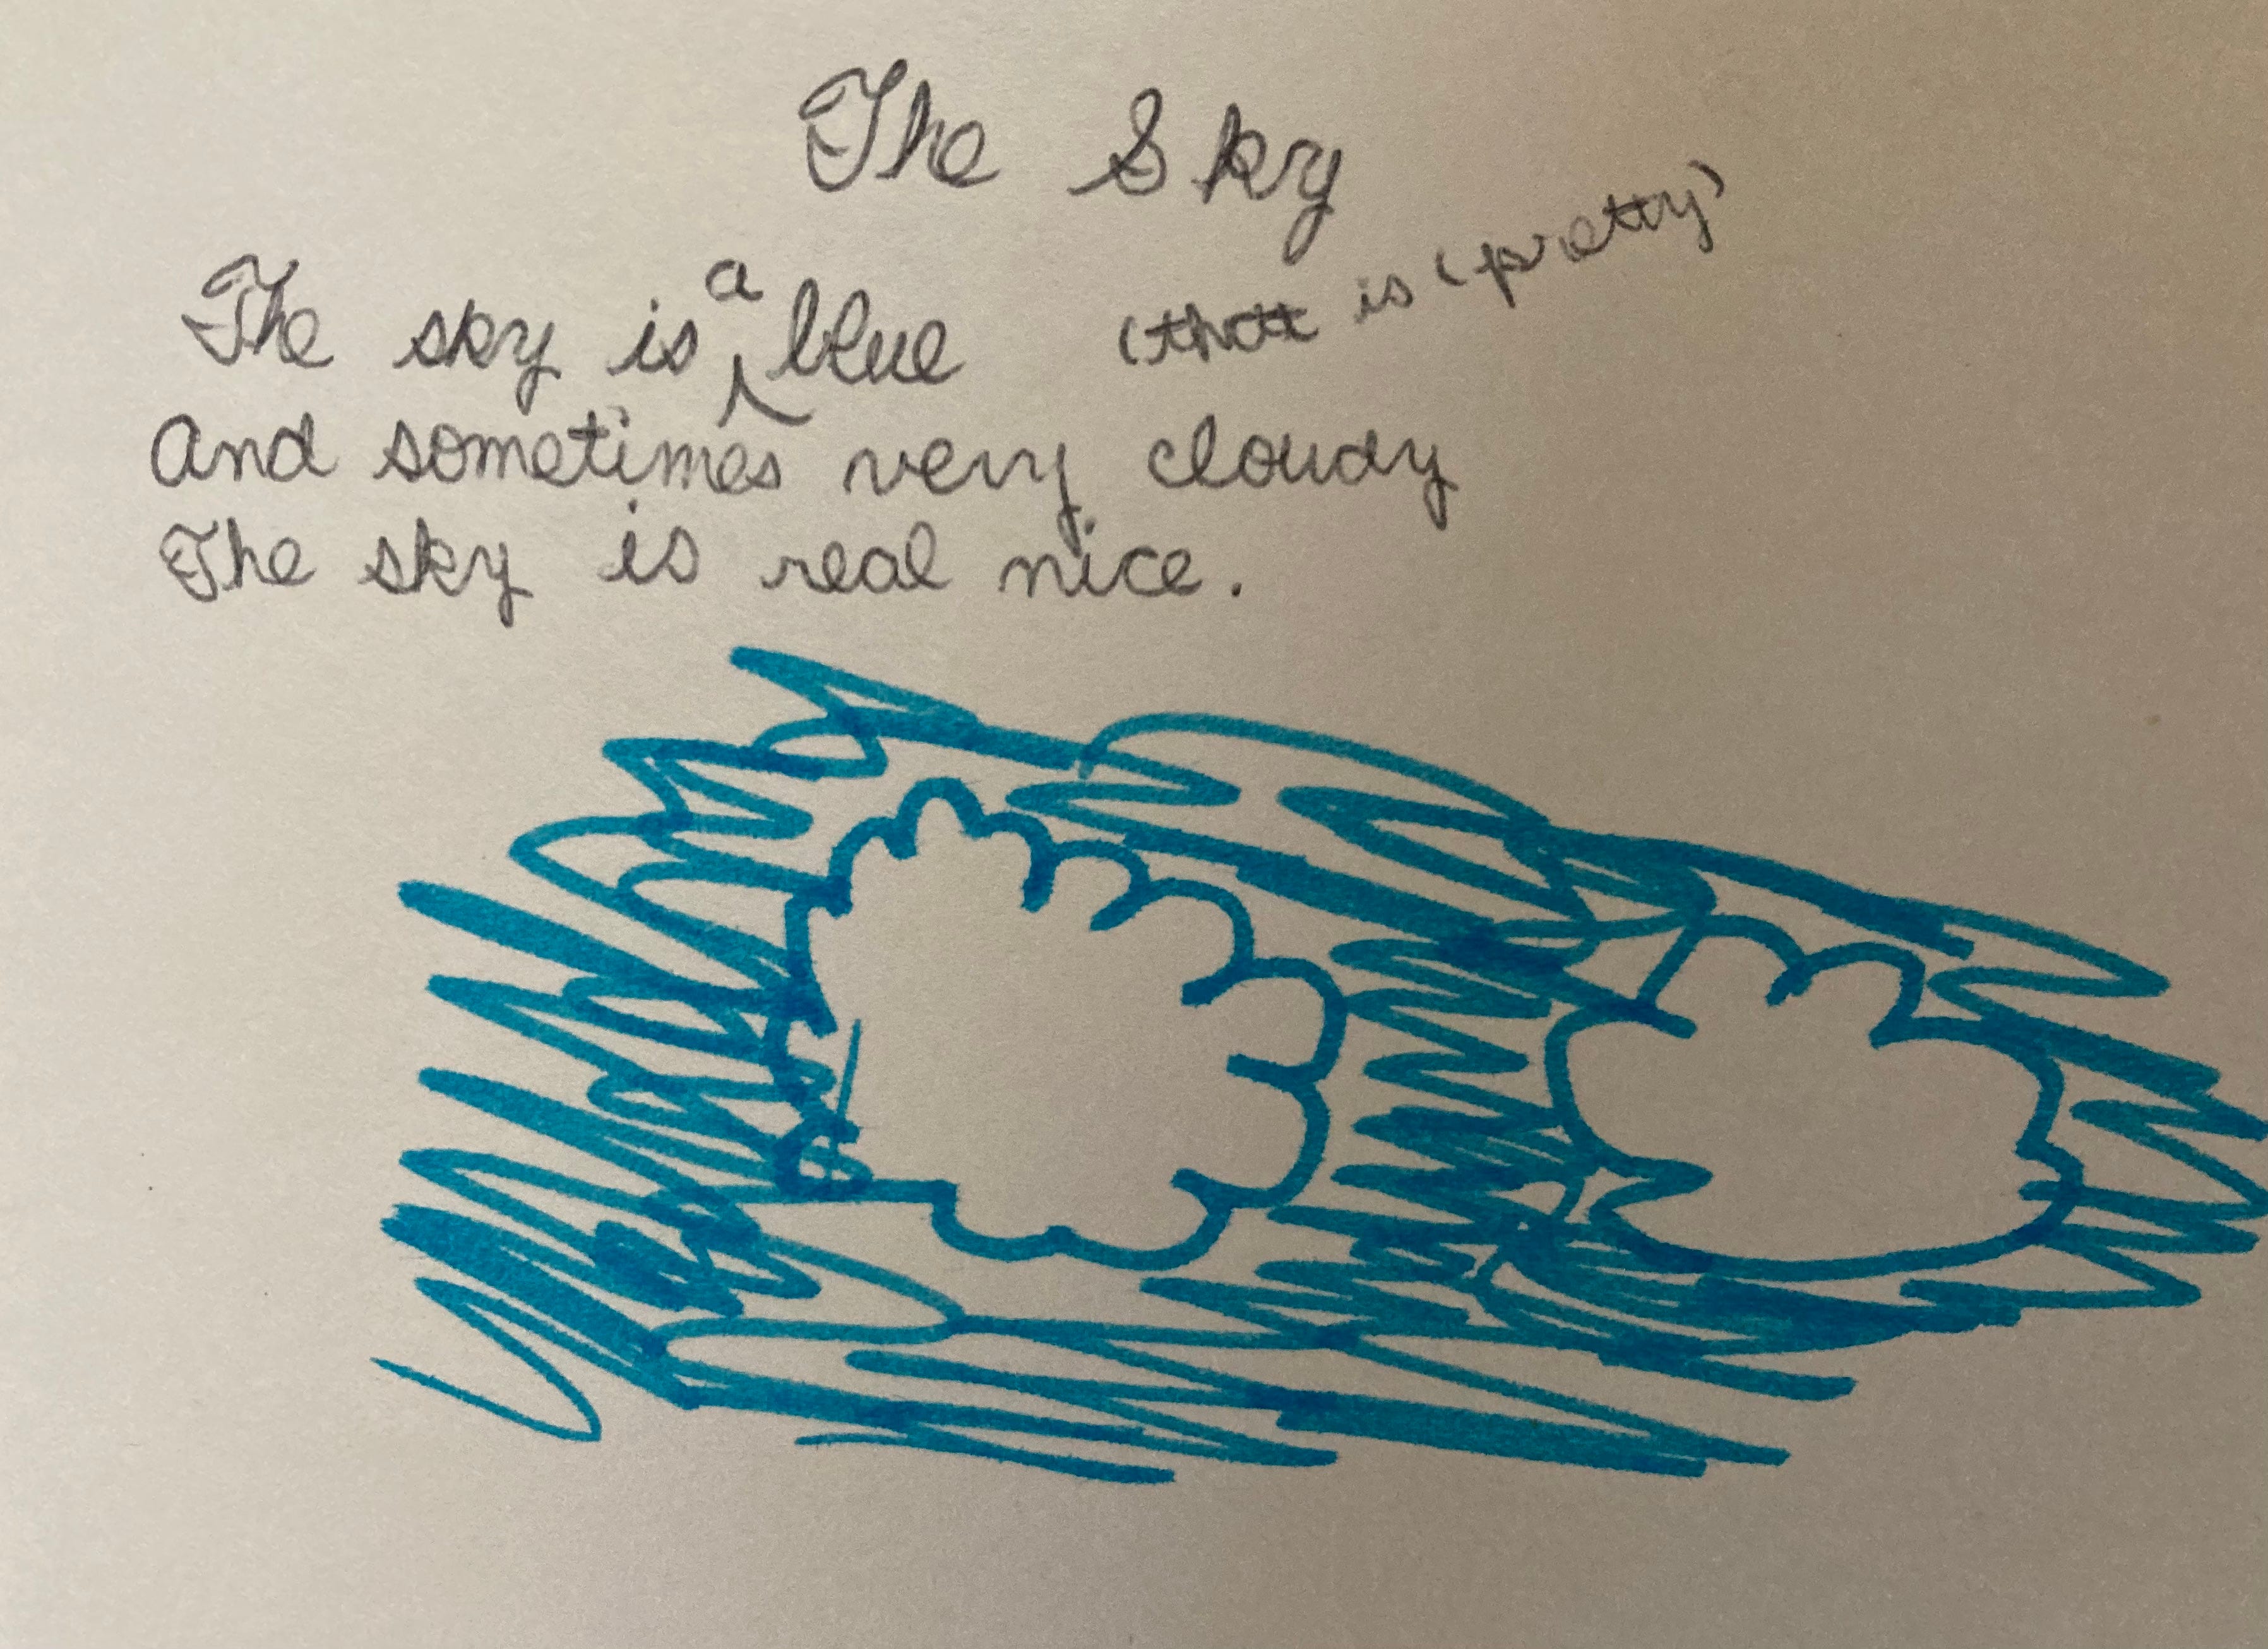 The Sky
The sky is a blue (that is (pretty)
And sometimes very cloudy
The sky is real nice.